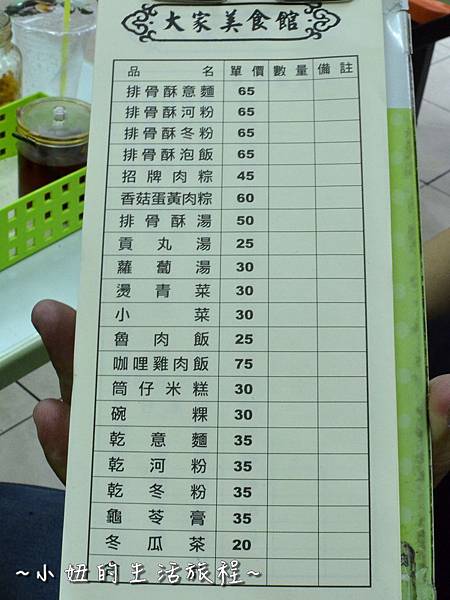 大家美食館
品名 單價 數量 備註
排骨酥意麵 65
排骨酥河粉 65
排骨酥冬粉 65
排骨酥泡飯 65
招牌肉粽 45
香菇蛋黃肉粽 60
排骨酥湯 50
貢丸湯 25
蘿蔔湯 30
燙青菜 30
小菜 30
魯肉飯 25
咖哩雞肉飯 75
筒仔米糕 30
碗粿 30
乾意麵 35
乾河粉 35
乾冬粉 35
龜苓膏 35
冬瓜茶 20
~小妞的生活旅程~